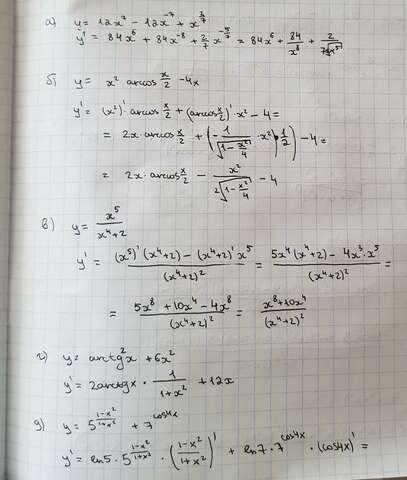 а) y = 12x⁷ - 12x⁻⁷ + x^(2/7)
y' = 84x⁶ + 84x⁻⁸ + 2/7 x^(-5/7) = 84x⁶ + 84/x⁸ + 2/(7 ⁷√x⁵)
б) y = x² arccos x/2 - 4x
y' = (x²)' arccos x/2 + (arccos x/2)' x² - 4 =
= 2x · arccos x/2 + (- 1/√(1 - x²/4) · x² · 1/2) - 4 =
= 2x · arccos x/2 - x²/(2√(1 - x²/4)) - 4
в) y = x⁵/(x⁴+2)
y' = ((x⁵)' (x⁴+2) - (x⁴+2)' x⁵)/(x⁴+2)² = (5x⁴(x⁴+2) - 4x³ · x⁵)/(x⁴+2)² =
= (5x⁸ + 10x⁴ - 4x⁸)/(x⁴+2)² = (x⁸+10x⁴)/(x⁴+2)²
г) y = arctg²x + 6x²
y' = 2arctgx · 1/(1+x²) + 12x
д) y = 5^((1-x²)/(1+x²)) + 7^(cos4x)
y' = ln5 · 5^((1-x²)/(1+x²)) · ((1-x²)/(1+x²))' + ln7 · 7^(cos4x) · (cos4x)' =